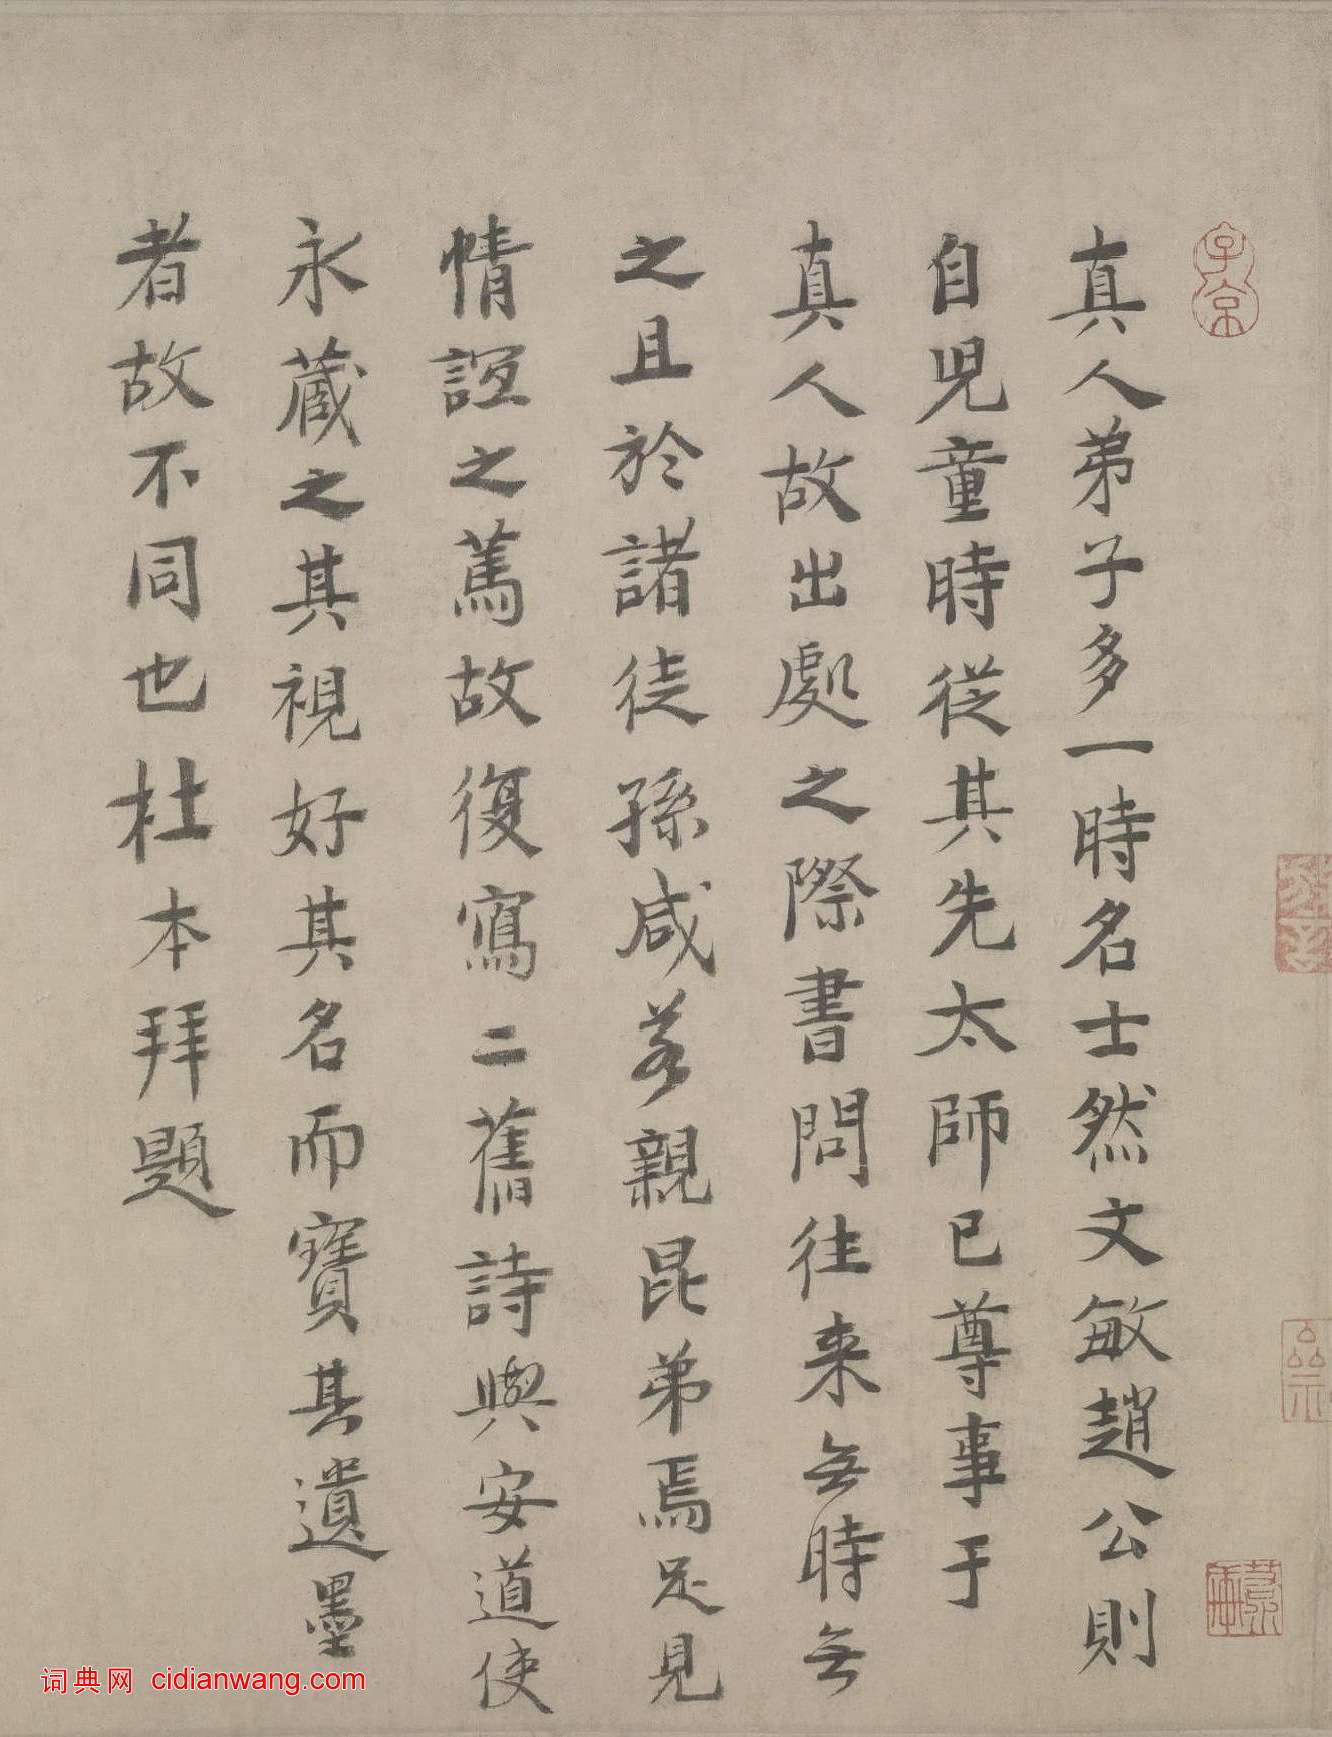 真人弟子多一時名士然文敏趙公則
自児童時従其先太師已尊事于
真人故出處之際書問往来无時无
之且於諸徒孫咸若親昆弟焉足見
情誼之篤故復寫二舊詩與安道使
永蔵之其視好其名而寶其遺墨
者故不同也杜本拜題
子京
词典网 cidianwang.com